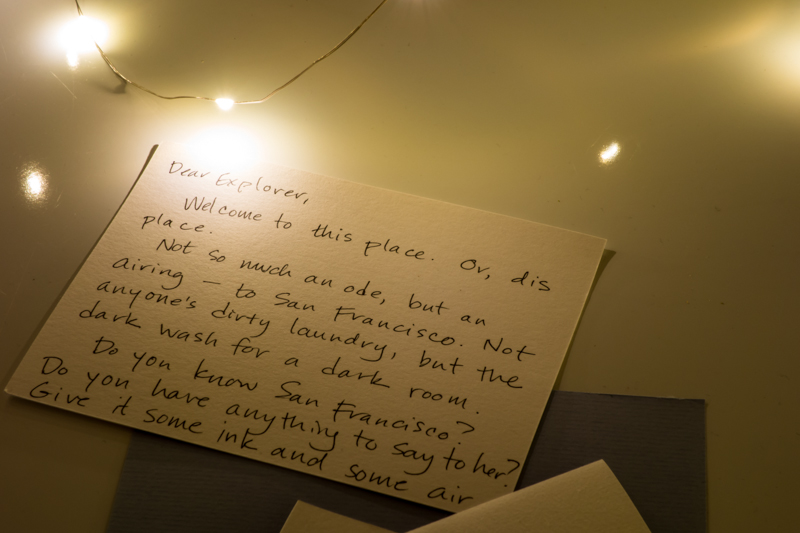 Dear Explorer,
Welcome to this place. Or, dis
place.
Not so much an ode, but an
airing – to San Francisco. Not
anyone's dirty laundry, but the
dark wash for a dark room.
Do you know San Francisco?
Do you have anything to say to her?
Give it some ink and some air